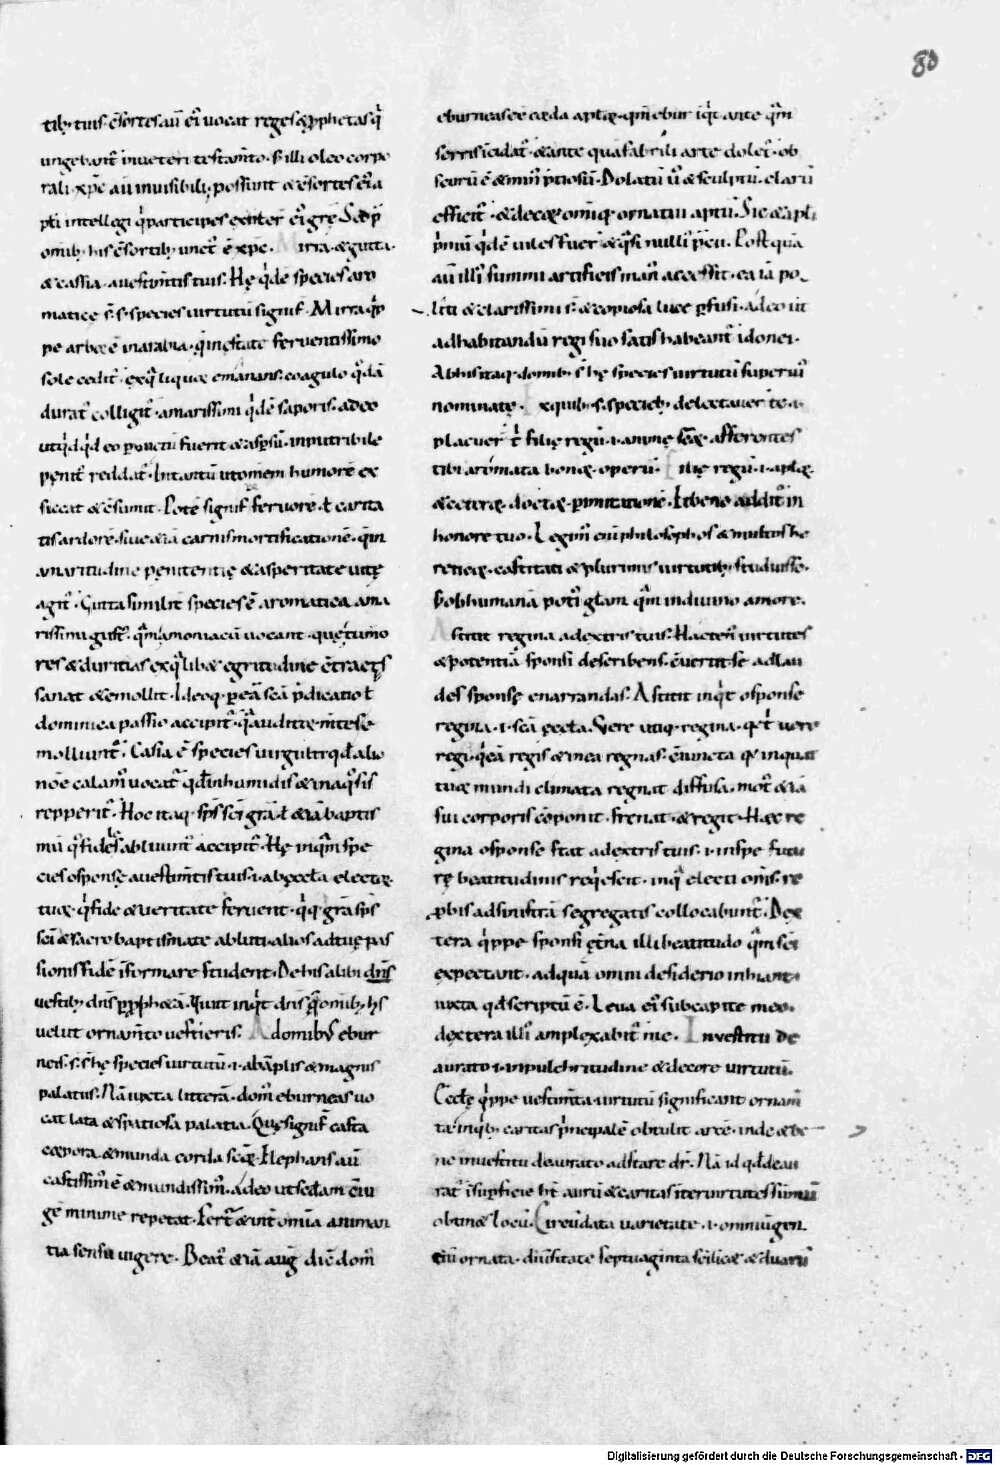 80
tib; tuis. c̄sortes aū ei᷒ uocat reges & ꝓphetas q̇
ungebant᷑ in ueteri testam̄to. S; illi oleo corpo
rali. xp̄c aū inuisibili. possunt & c̄sortes ei᷒
intellegi q̇ participes ei᷒ grę. Sed p̄
omib; his c̄sortib; unct᷒ ē xp̄c. Mirra. & gutta.
& cassia. a uestim̄tis tuis. Hę q̇dē species aro
matice s̄. s. species uirtutū signif̄. Mirra q̇p
pe arbor ē in arabia. q̇ in estate feruentissimo
sole cedit᷑. ex q̇ liquor emanans. coagulo q̇dā
durat᷑ colligit᷑. amarissimi q̇dē saporis. adeo
ut q̇dq̇d eo punctū fuerit & asp̄sū. inputribile
penit᷒ reddat᷑. Intantū ut omem humorē ex
siccat & c̄sumit. Potē signif̄ feruorē. ł carita
tis ardorē. siue & iā carnis mortificationē. q̄ in
amaritudine penitentię & asperitate uitę
agit᷑. Gutta similit̄ species ē aromatica ama
rissimi gust᷒. q̄m āmoniacū uocant. quę tumo
res & duritias ex q̇lib& egritudine c̄tractas
sanat & emollit. Ideoq; p eā sc̄a p̄dicatio ł
dominica passio accipit᷑. q̄ auditę mentes ē
molliunt᷑. Casia ē species uirgulti qđ alio
nōe calam᷒ uocat᷑ qđ in humidis & in aq̇sis
repperit᷑. Hoc itaq; sp̄s sc̄i grā ł & iā baptis
mū q̇ fideles abluunt᷑ accipit᷑. Hę inq̄m spe
cies o sponsę a uestim̄tis tuis. i. ab ęccła electorꝝ
tuorꝝ. q̇ fide & ueritate feruent. q̇q; grā sp̄s
sc̄i & sacro baptismate abluti. alios ad tuę pas
sionis fidē īformare student. De his alibi dn̄s
uestib; dn̄s p ꝓph&ā. Uiuit inq̇t dn̄s q̄ omib; his
uelut ornam̄to uestieris. A domib᷒ ebur
neis. s. s̄ hę species uirtutū. i. ab āplis & magnis
palatiis. Nā iuxta litterā. dom᷒ eburneas uo
cat lata & spatiosa palatia. Quę signif̄ casta
corpora & munda corda sc̄orꝝ. Elephans aū
castissim᷒ ē & mundissim᷒. adeo ut sedam c̄iu
gē minime repetat. Fert᷑ & int̄ omīa animan
tia sensu uigere. Beat᷒ & iā aug᷒ dic̄ dom᷒
eburneas eē corda aptorꝝ. q̄m ebur iq̇t ante q̄m
serris īcidat᷑. & ante qua fabrili arte dolet᷑. ob
scurū ē & min᷒ p̄tiosū. Dolatū u᷒ & sculptū. clarū
efficit᷑. & decorꝝ omiq; ornatui aptū. Sic & apłi
p̄mū q̇dē uiles fuer̄ & q̇si nulli᷒ p̄cii. Post quā
aū illi᷒ summi artificis man᷒ accessit. ea iā po
liti & clarissimi s̄. & copiosa luce ꝑfusi. adeo ut
ad habitandū regi suo satis habeant᷑ idonei.
Ab his itaq; domib; s̄ hę species uirtutū superi᷒
nominatę. Ex quib; s. specieb; delectauer̄ te. i.
placuer̄ t᷑ filię regū. i. animę sc̄orꝝ afferentes
tibi aromata bonorꝝ operū. Filię regū. i. aptorꝝ.
& ceterorꝝ. doctorꝝ. p imitationē. Et bene addit᷑ in
honore tuo. Legim᷒ eni philosophos & multos he
reticorꝝ. castitati & plurimis uirtutib; studuisse.
s; ob humanā poti᷒ głam q̄m in diuino amore.
Astitit regina a dextris tuis. Hacten᷒ uirtutes
& potentiā sponsi describens. c̄uertit se ad lau
des sponsę enarrandas. Astitit inq̇t o sponse
regina. i. sc̄a ęccła. Vere utiq; regina. q̇ t̄ uero
regi. q̇ eā regis & in ea regnas. c̄iuncta q̇ in quat
tuor mundi climata regnat diffusa. mot᷒ & iā
sui corporis cōponit. frenat. & regit. Hęc re
gina o sponse stat a dextris tuis. i. in spe futu
rę beatitudinis req̇escit. in q̄ electi om̄s. re
ꝓbis ad sinistrā segregatis collocabunt᷑. Dex
tera q̇ppe sponsi ęt̄na illi beatitudo q̄m sc̄i
expectant. ad quā omni desiderio inhiant.
iuxta qđ scriptū ē. Leua ei᷒ sub capite meo.
& dextera illi᷒ amplexabit᷑ me. In uestitu de
aurato. i. in pulchritudine & decore uirtutū.
Ęccłę q̇ppe uestim̄ta. uirtutū significant ornam̄
ta. in q̇b; caritas p̄ncipalē obtulit arcē. inde & be
ne in uestitu deaurato adstare dr̄. Nā id qđ deau
rat᷑ ī suꝑficie ht̄ aurū & caritas it̄ uirtutes sūmū
obtin& locū. Circūdata uarietate. i. omnīgen
tiū ornata. diu᷒sitate septuaginta scilic& & duarū
Digitalisierung gefördert durch die Deutsche Forschungsgemeinschaft - DFG